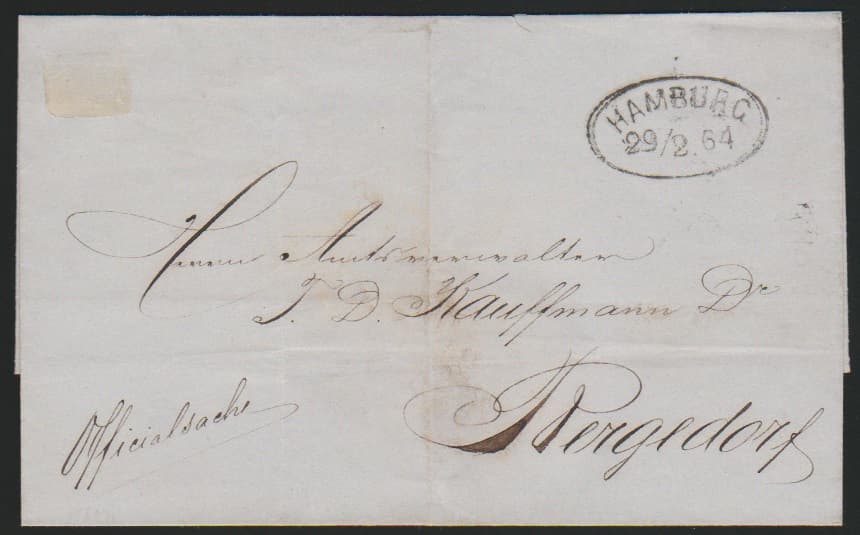 HAMBURG
29/2.64
Herrn Amtsverwalter
J. D. Kauffmann Dr
Bergedorf
Officialsache